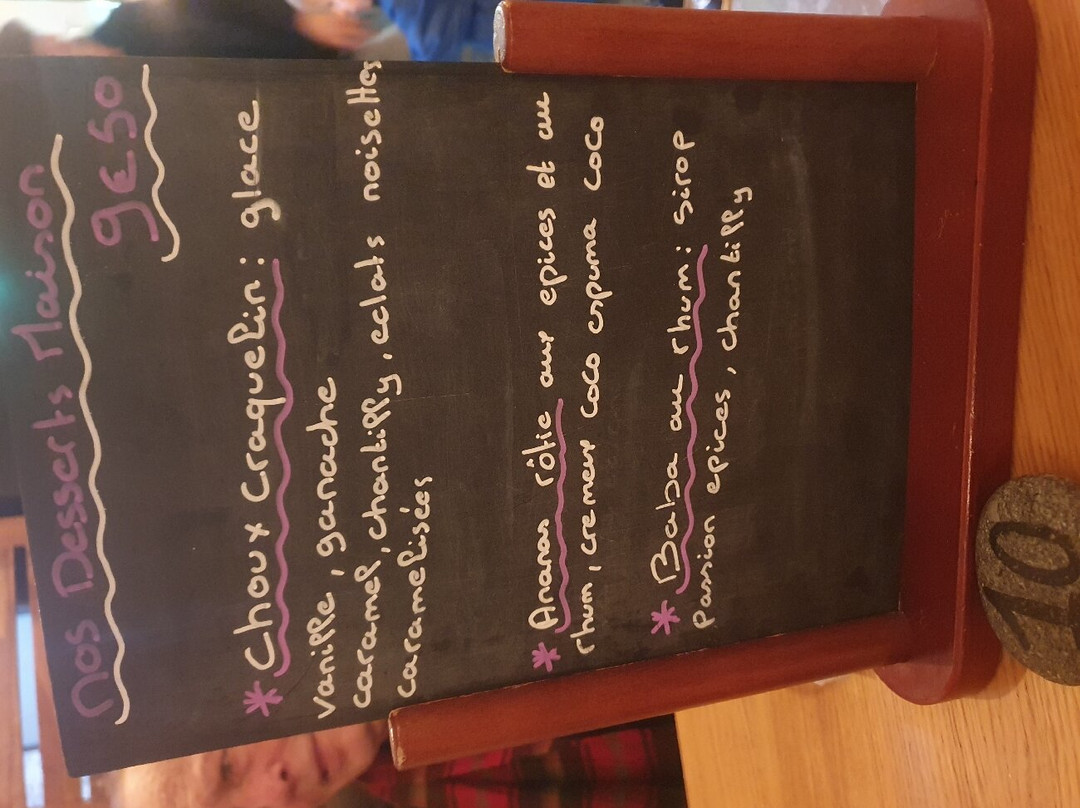 Nos Desserts Maison
9€50
* Choux Craquelin : glace
vanille, ganache
caramel, chantilly, eclats noisettes
caramelisées
* Ananas rôtie aux epices et au
rhum, cremeux coco espuma coco
* Baba au rhum : sirop
passion epices, chantilly
10